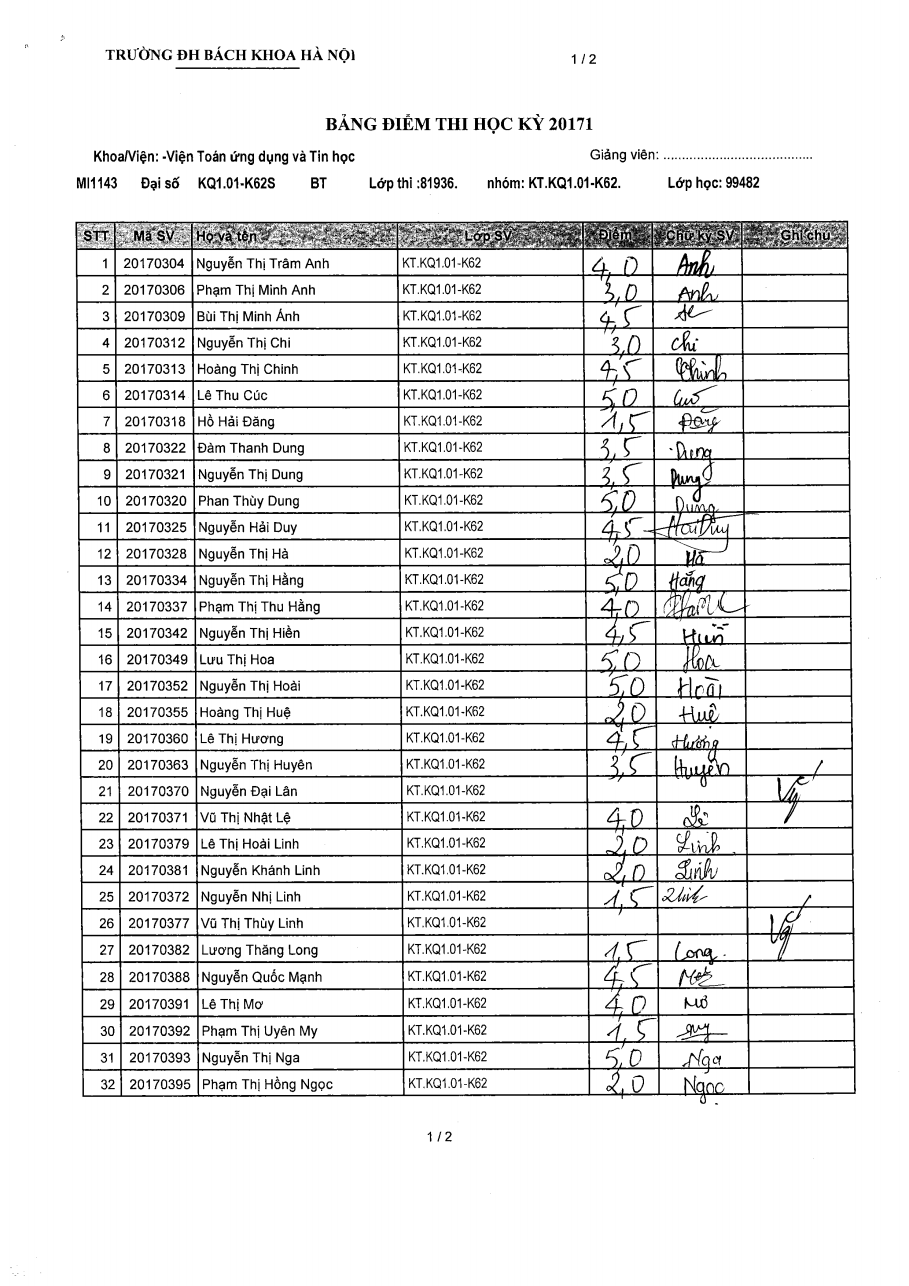 TRƯỜNG ĐH BÁCH KHOA HÀ NỘI 1 / 2
BẢNG ĐIỂM THI HỌC KỲ 20171
Khoa/Viện: -Viện Toán ứng dụng và Tin học Giảng viên: ..........................................
MI1143 Đại số KQ1.01-K62S BT Lớp thi :81936. nhóm: KT.KQ1.01-K62. Lớp học: 99482
STT Mã SV Họ và tên Lớp SV Điểm Chữ ký SV Ghi chú
1 20170304 Nguyễn Thị Trâm Anh KT.KQ1.01-K62 4,0 Anh
2 20170306 Phạm Thị Minh Anh KT.KQ1.01-K62 3,0 Anh
3 20170309 Bùi Thị Minh Ánh KT.KQ1.01-K62 4,5
4 20170312 Nguyễn Thị Chi KT.KQ1.01-K62 3,0 Chi
5 20170313 Hoàng Thị Chinh KT.KQ1.01-K62 4,5 Chinh
6 20170314 Lê Thu Cúc KT.KQ1.01-K62 5,0
7 20170318 Hồ Hải Đăng KT.KQ1.01-K62 1,5 Đăng
8 20170322 Đàm Thanh Dung KT.KQ1.01-K62 3,5 Dung
9 20170321 Nguyễn Thị Dung KT.KQ1.01-K62 3,5 Dung
10 20170320 Phan Thùy Dung KT.KQ1.01-K62 5,0 Dung
11 20170325 Nguyễn Hải Duy KT.KQ1.01-K62 4,5 Hải Duy
12 20170328 Nguyễn Thị Hà KT.KQ1.01-K62 2,0 Hà
13 20170334 Nguyễn Thị Hằng KT.KQ1.01-K62 5,0 Hằng
14 20170337 Phạm Thị Thu Hằng KT.KQ1.01-K62 4,0
15 20170342 Nguyễn Thị Hiền KT.KQ1.01-K62 4,5 Hiền
16 20170349 Lưu Thị Hoa KT.KQ1.01-K62 5,0 Hoa
17 20170352 Nguyễn Thị Hoài KT.KQ1.01-K62 5,0 Hoài
18 20170355 Hoàng Thị Huệ KT.KQ1.01-K62 2,0 Huệ
19 20170360 Lê Thị Hương KT.KQ1.01-K62 4,5 Hương
20 20170363 Nguyễn Thị Huyên KT.KQ1.01-K62 3,5 Huyên
21 20170370 Nguyễn Đại Lân KT.KQ1.01-K62 Vg
22 20170371 Vũ Thị Nhật Lệ KT.KQ1.01-K62 4,0 Lệ
23 20170379 Lê Thị Hoài Linh KT.KQ1.01-K62 2,0 Linh
24 20170381 Nguyễn Khánh Linh KT.KQ1.01-K62 2,0 Linh
25 20170372 Nguyễn Nhị Linh KT.KQ1.01-K62 1,5 Linh
26 20170377 Vũ Thị Thùy Linh KT.KQ1.01-K62 Vg
27 20170382 Lương Thăng Long KT.KQ1.01-K62 1,5 Long
28 20170388 Nguyễn Quốc Mạnh KT.KQ1.01-K62 4,5
29 20170391 Lê Thị Mơ KT.KQ1.01-K62 4,0 Mơ
30 20170392 Phạm Thị Uyên My KT.KQ1.01-K62 1,5
31 20170393 Nguyễn Thị Nga KT.KQ1.01-K62 5,0 Nga
32 20170395 Phạm Thị Hồng Ngọc KT.KQ1.01-K62 2,0 Ngọc
1 / 2